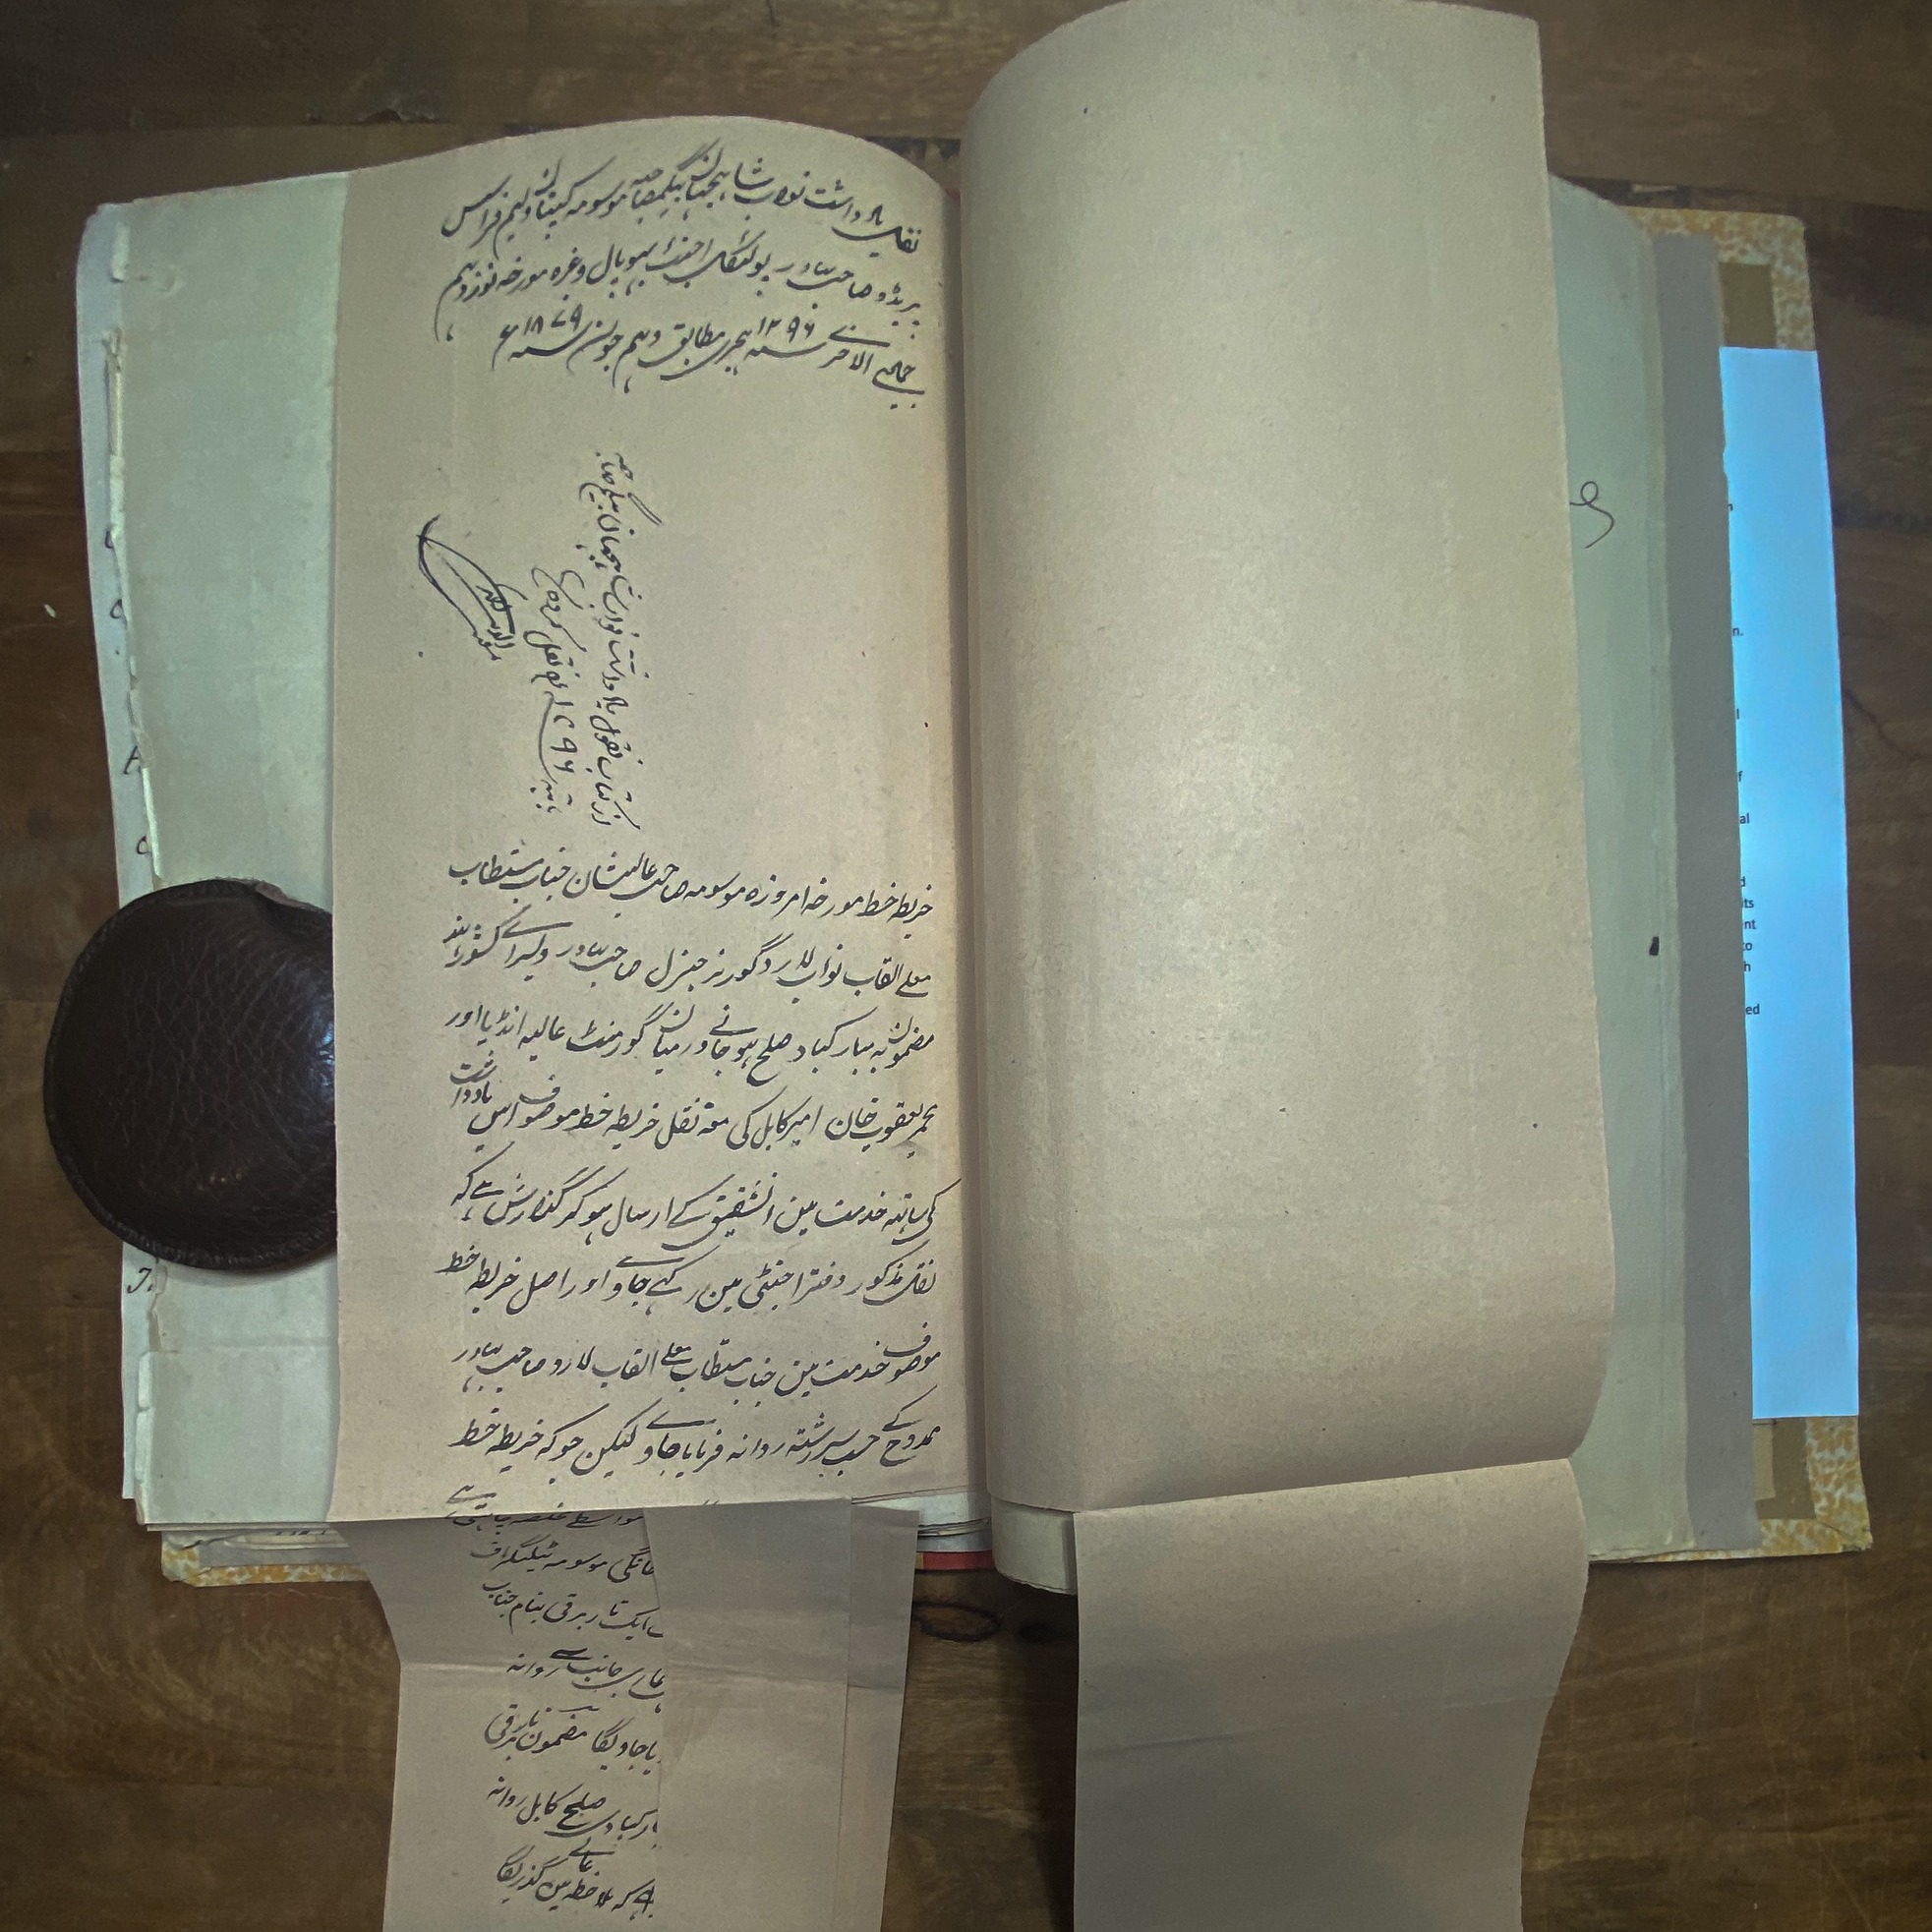 نقل یادداشت نواب شاہجہان بیگم صاحبہ موسومہ کپتان ولیم فرانسس
پریڈو صاحب بہادر پولٹکل اجنٹ بھوپال وغیرہ مورخہ نوزدہم
جمادی الاخری سنہ ۱۲۹۶ ہجری مطابق دہم جون سنہ ۱۸۷۹ ع
از کتاب نقول یادداشت نواب شاہجہان بیگم صاحبہ
بابتہ سنہ ۱۲۹۶ نقل کردہ شد
خریطہ خط مورخہ امروزہ موسومہ صاحب عالیشان جناب مستطاب
معلے القاب نواب لارڈ گورنر جنرل صاحب بہادر ویسراے کشور ہند
مضمون بہ مبارکباد صلح ہو جانے درمیان گورمنٹ عالیہ انڈیا اور
محمد یعقوب خان امیر کابل کی معہ نقل خریطہ خط موصوف اس یادداشت
کی ساتہ خدمت مین انشفیق کے ارسال ہو کر گذارش ہے کہ
نقل مذکور دفتر اجنٹی مین رکہے جاوے اور اصل خریطہ خط
موصوف خدمت مین جناب مستطاب معلے القاب لارڈ صاحب بہادر
ممدوح کے حسب سررشتہ روانہ فرمایا جاوے لیکن جو کہ خریطہ خط
واسطے عرصہ چاہتی ہے
خانگی موسومہ ٹیلیگراف
ایک تار برقی بنام جناب
جانب سے روانہ
یا جاویگا مضمون تار برقی
صلح کابل روانہ
کہ ملاحظہ عالے مین گذریگا